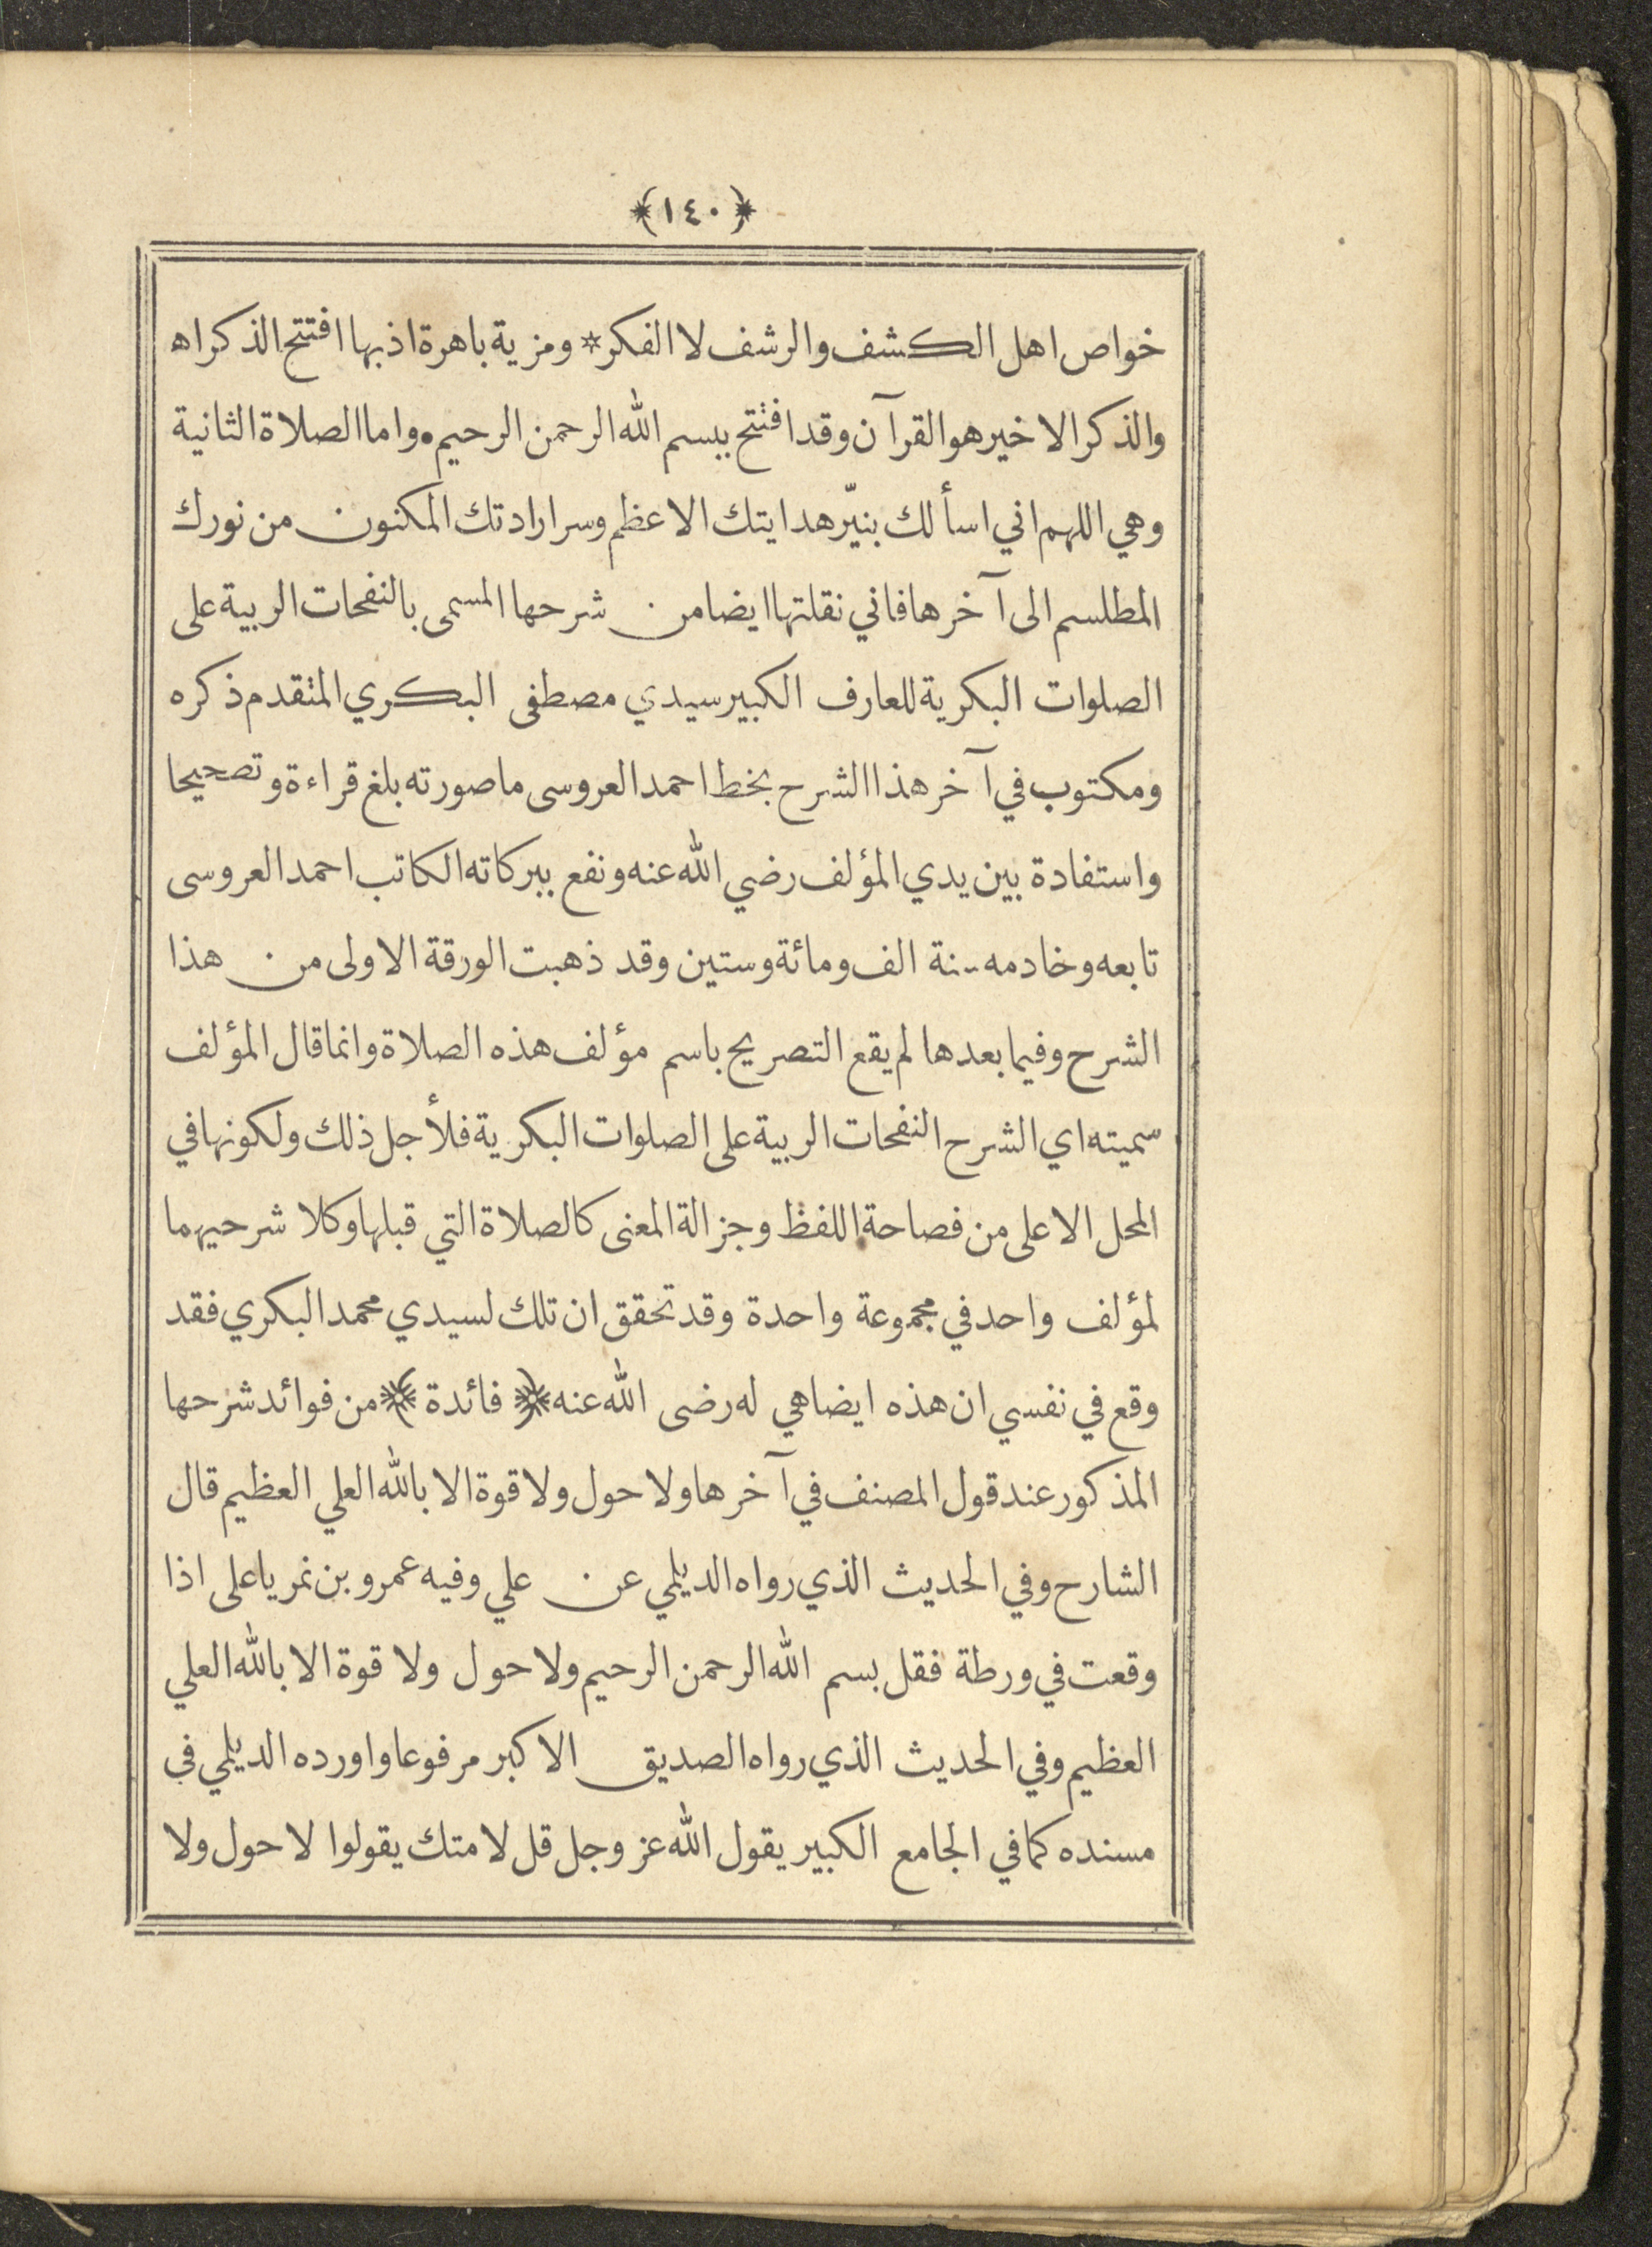 ﴿١٤٠﴾
خواص اهل الكشف والرشف لا الفكر * ومزية باهرة اذ بها افتتح الذكر اه
والذكر الاخير هو القرآن وقد افتتح ببسم الله الرحمن الرحيم • واما الصلاة الثانية
وهي اللهم اني اسألك بنيّر هدايتك الاعظم وسر ارادتك المكنون من نورك
المطلسم الى آخرها فاني نقلتها ايضا من شرحها المسمى بالنفحات الربية على
الصلوات البكرية للعارف الكبير سيدي مصطفى البكري المتقدم ذكره
ومكتوب في آخر هذا الشرح بخط احمد العروسى ما صورته بلغ قراءة وتصحيحا
واستفادة بين يدي المؤلف رضي الله عنه ونفع ببركاته الكاتب احمد العروسى
تابعه وخادمه سنة الف ومائة وستين وقد ذهبت الورقة الاولى من هذا
الشرح وفيما بعدها لم يقع التصريح باسم مؤلف هذه الصلاة وانما قال المؤلف
سميته اي الشرح النفحات الربية على الصلوات البكرية فلأجل ذلك ولكونها في
المحل الاعلى من فصاحة اللفظ وجزالة المعنى كالصلاة التي قبلها وكلا شرحيهما
لمؤلف واحد في مجموعة واحدة وقد تحقق ان تلك لسيدي محمد البكري فقد
وقع في نفسي ان هذه ايضا هي له رضى الله عنه ﴿ فائدة ﴾ من فوائد شرحها
المذكور عند قول المصنف في آخرها ولا حول ولا قوة الا بالله العلي العظيم قال
الشارح وفي الحديث الذي رواه الديلمي عن علي وفيه عمرو بن نمر يا على اذا
وقعت في ورطة فقل بسم الله الرحمن الرحيم ولا حول ولا قوة الا بالله العلي
العظيم وفي الحديث الذي رواه الصديق الاكبر مرفوعا واورده الديلمي في
مسنده كما في الجامع الكبير يقول الله عز وجل قل لامتك يقولوا لا حول ولا